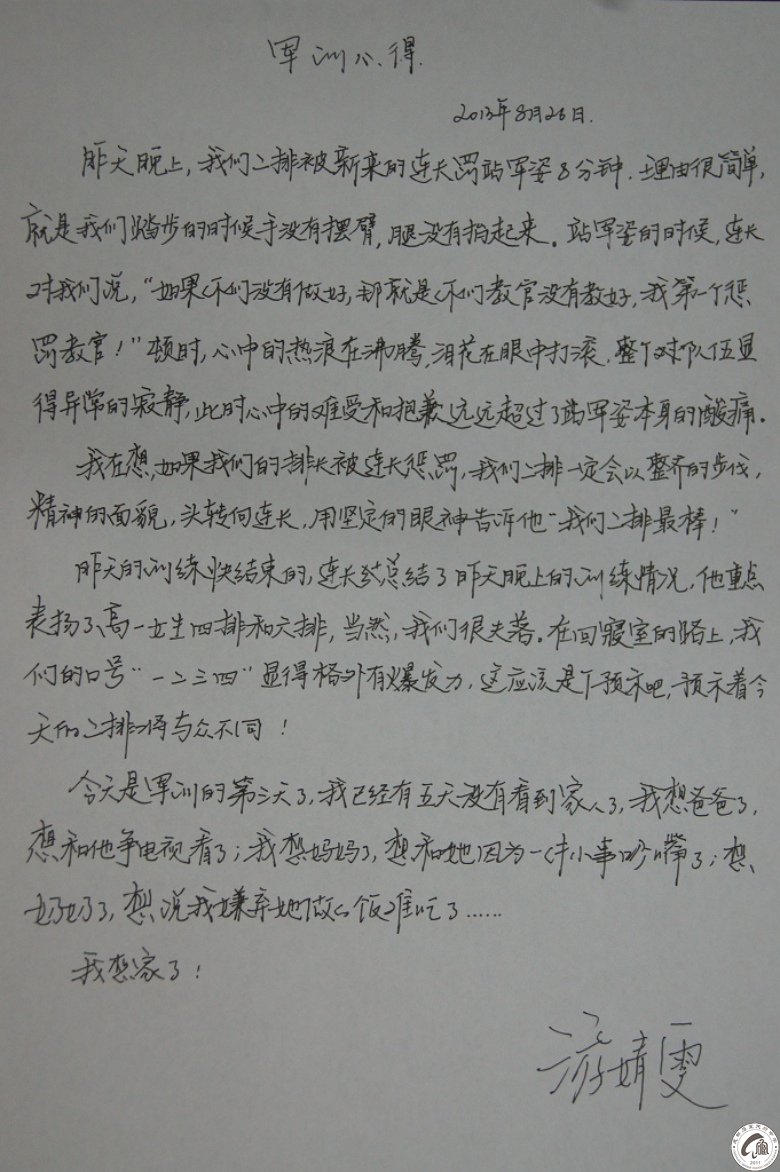 军训心得.
2013年8月26日.
昨天晚上，我们二排被新来的连长罚站军姿8分钟.理由很简单,
就是我们踏步的时候手没有摆臂,腿没有抬起来。站军姿的时候,连长
对我们说,“如果你们没有做好,那就是你们教官没有教好,我第一个惩
罚教官!”顿时,心中的热浪在沸腾,泪花在眼中打滚.整个队伍显
得异常的寂静,此时心中的难受和抱歉远远超过了站军姿本身的酸痛。
我在想,如果我们的排长被连长惩罚,我们二排一定会以整齐的步伐,
精神的面貌,头转向连长,用坚定的眼神告诉他“我们二排最棒!”
昨天的训练快结束的,连长总结了昨天晚上的训练情况,他重点
表扬了高一女生四排和六排,当然,我们很失落。在回寝室的路上,我
们的口号“一二三四”显得格外有爆发力,这应该是个预示吧,预示着今
天的二排将与众不同!
今天是军训的第三天了,我已经有五天没有看到家人了,我想爸爸了,
想和他争电视看了;我想妈妈了,想和她因为一件小事吵嘴了;想
奶奶了,想说我嫌弃她做的饭难吃了……
我想家了!
游婧雯
2011